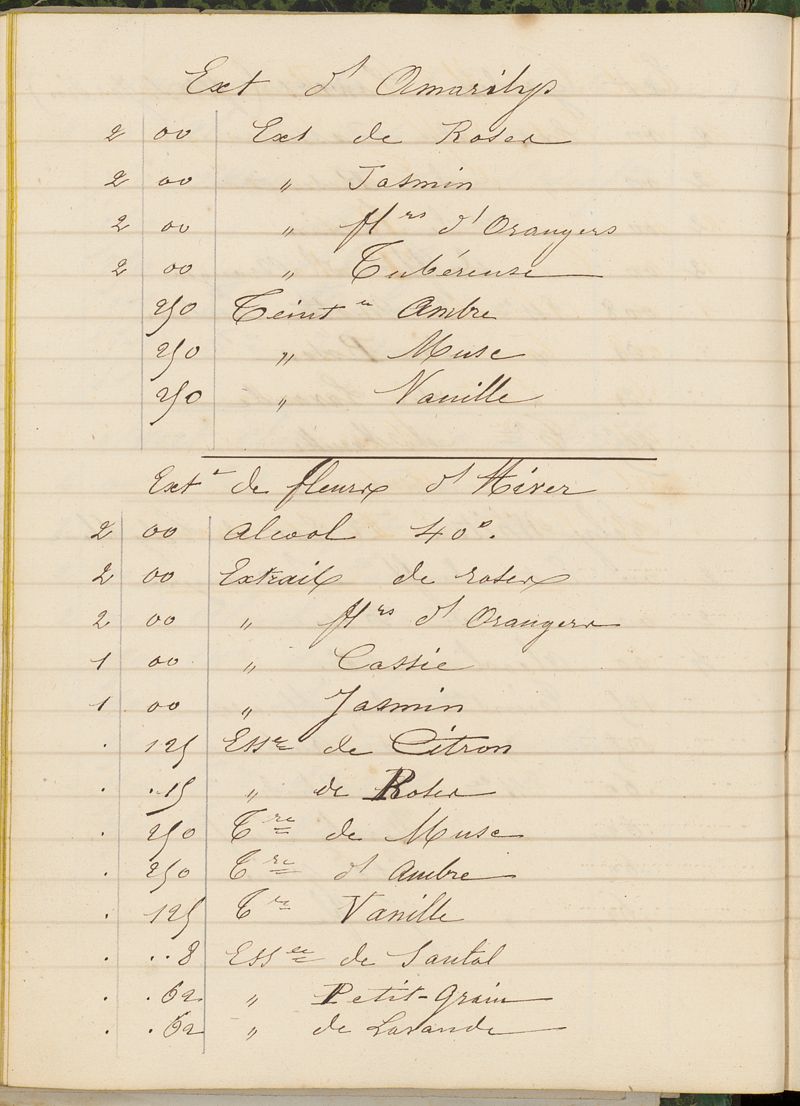 Ext d'Amarilys
2 00 Ext de Roses
2 00 " Jasmin
2 00 " flrs d'Orangers
2 00 " Tubéreuse
250 Teint re Ambre
250 " Musc
250 " Vanille
Ext t de fleurs d'Hiver
2 00 Alcool 40°.
2 00 Extrait de roses
2 00 " flrs d'Orangers
1 00 " Cassie
1 00 " Jasmin
. 125 Essce de Citron
. .15 " de Roses
. 250 Tre de Musc
. 250 Tre d'Ambre
. 125 Tre Vanille
. ..8 Essce de Santal
. .62 " Petit-Grain
. .62 " de Lavande